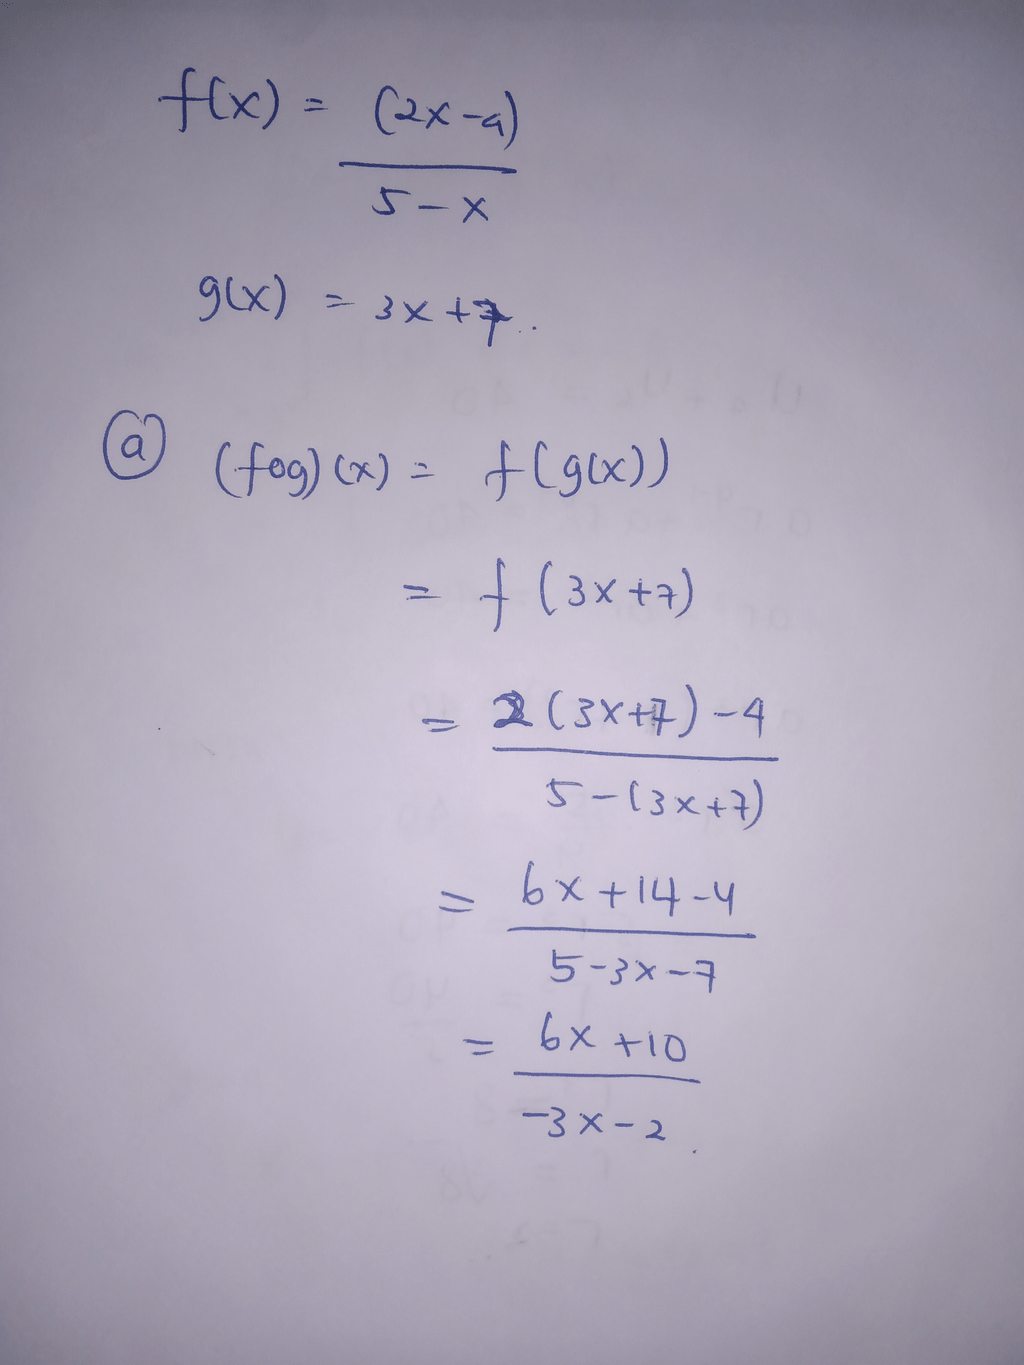 f(x) = (2x-4)
5-x
g(x) = 3x+7.
ⓐ (fog)(x) = f(g(x))
= f(3x+7)
= 2(3x+7)-4
5-(3x+7)
= 6x+14-4
5-3x-7
= 6x+10
-3x-2